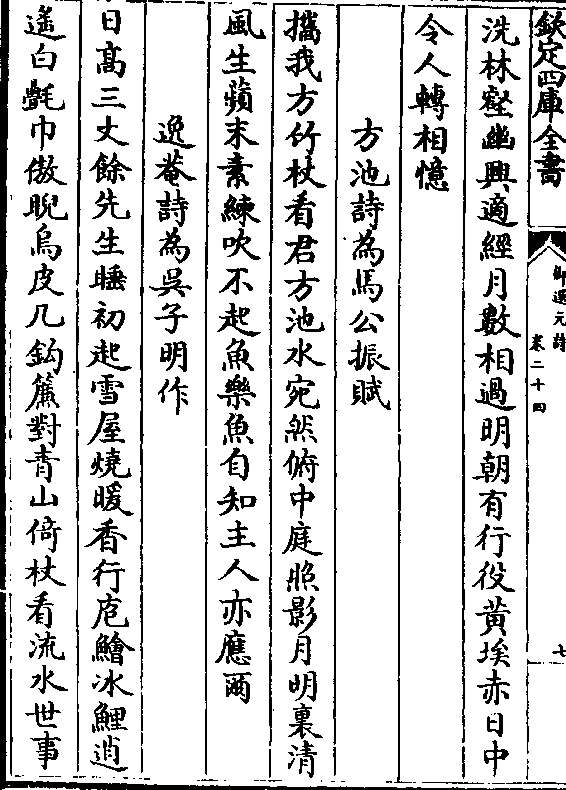 欽定四庫全書
御選元詩
卷二十四
七
洗林壑幽興適經月數相過明朝有行役黃埃赤日中
令人轉相憶
方池詩為馬公振賦
攜我方竹杖看君方池水宛然俯中庭照影月明裏清
風生蘋末素練吹不起魚樂魚自知主人亦應爾
逸菴詩為吳子明作
日高三丈餘先生睡初起雪屋燒暖香行庖鱠冰鯉逍
遙白氎巾傲睨烏皮几鈎簾對青山倚杖看流水世事